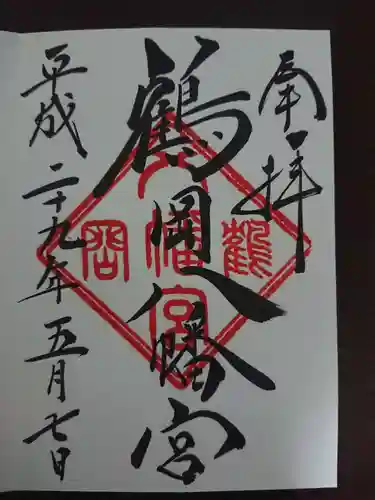 奉拝
鶴岡八幡宮
平成二十九年五月七日
鶴
八幡宮
岡